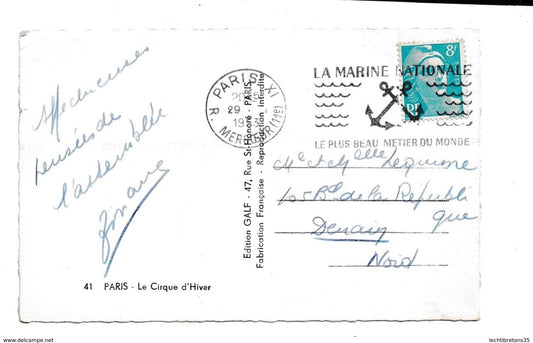 Affectueuses
pensées de
l'assemblée
PARIS XI
29 -
R. MERCŒUR (11e)
8F
RF
LA MARINE NATIONALE
LE PLUS BEAU METIER DU MONDE
Edition GALF - 47, Rue St-Honoré - PARIS
Fabrication Française - Reproduction interdite
105 Bd de la Républi
que
Denain
Nord
41 PARIS - Le Cirque d'Hiver
www.delcampe.net
lechtibretons35